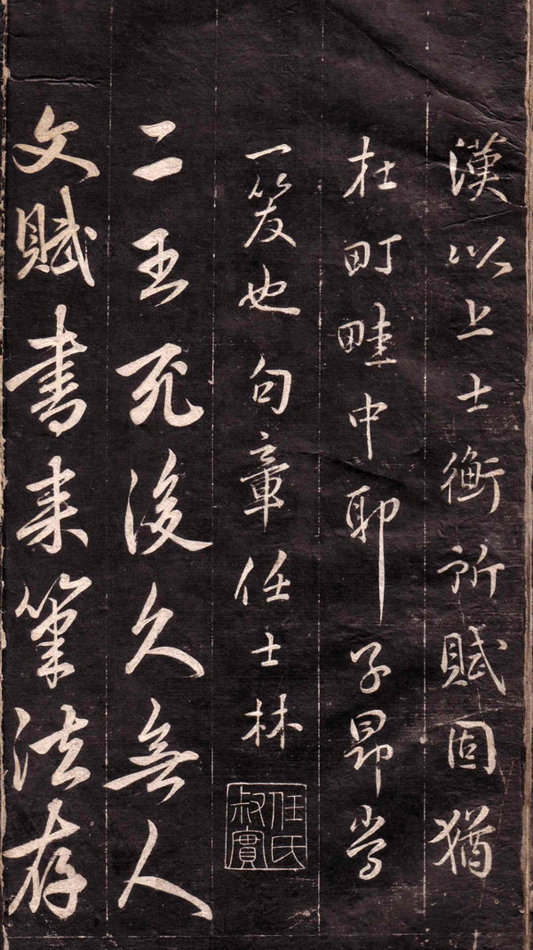 漢以上士衡所賦固猶
在町畦中耶子昂當
一笑也句章任士林
任氏叔實
二王死後久無人
文賦書來筆法存